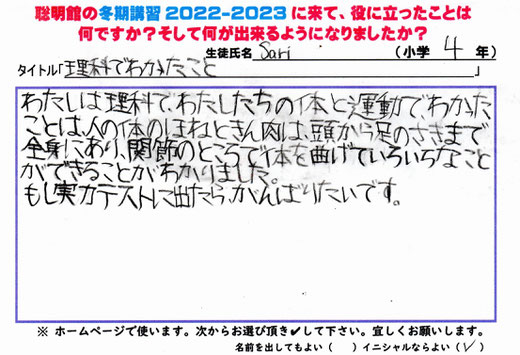 聡明館の冬期講習2022-2023に来て、役に立ったことは
何ですか?そして何が出来るようになりましたか?
生徒氏名 Sari (小学 4 年)
タイトル「理科でわかったこと」
わたしは理科で、わたしたちの体と運動で、わかった
ことは、人の体のほねときん肉は、頭から足のさきまで
全身にあり、関節のところで体を曲げていろいろなこと
ができることがわかりました。
もし実力テストに出たら、がんばりたいです。
※ ホームページで使います。次からお選び頂き✔して下さい。宜しくお願いします。
名前を出してもよい ( ) イニシャルならよい (✓)